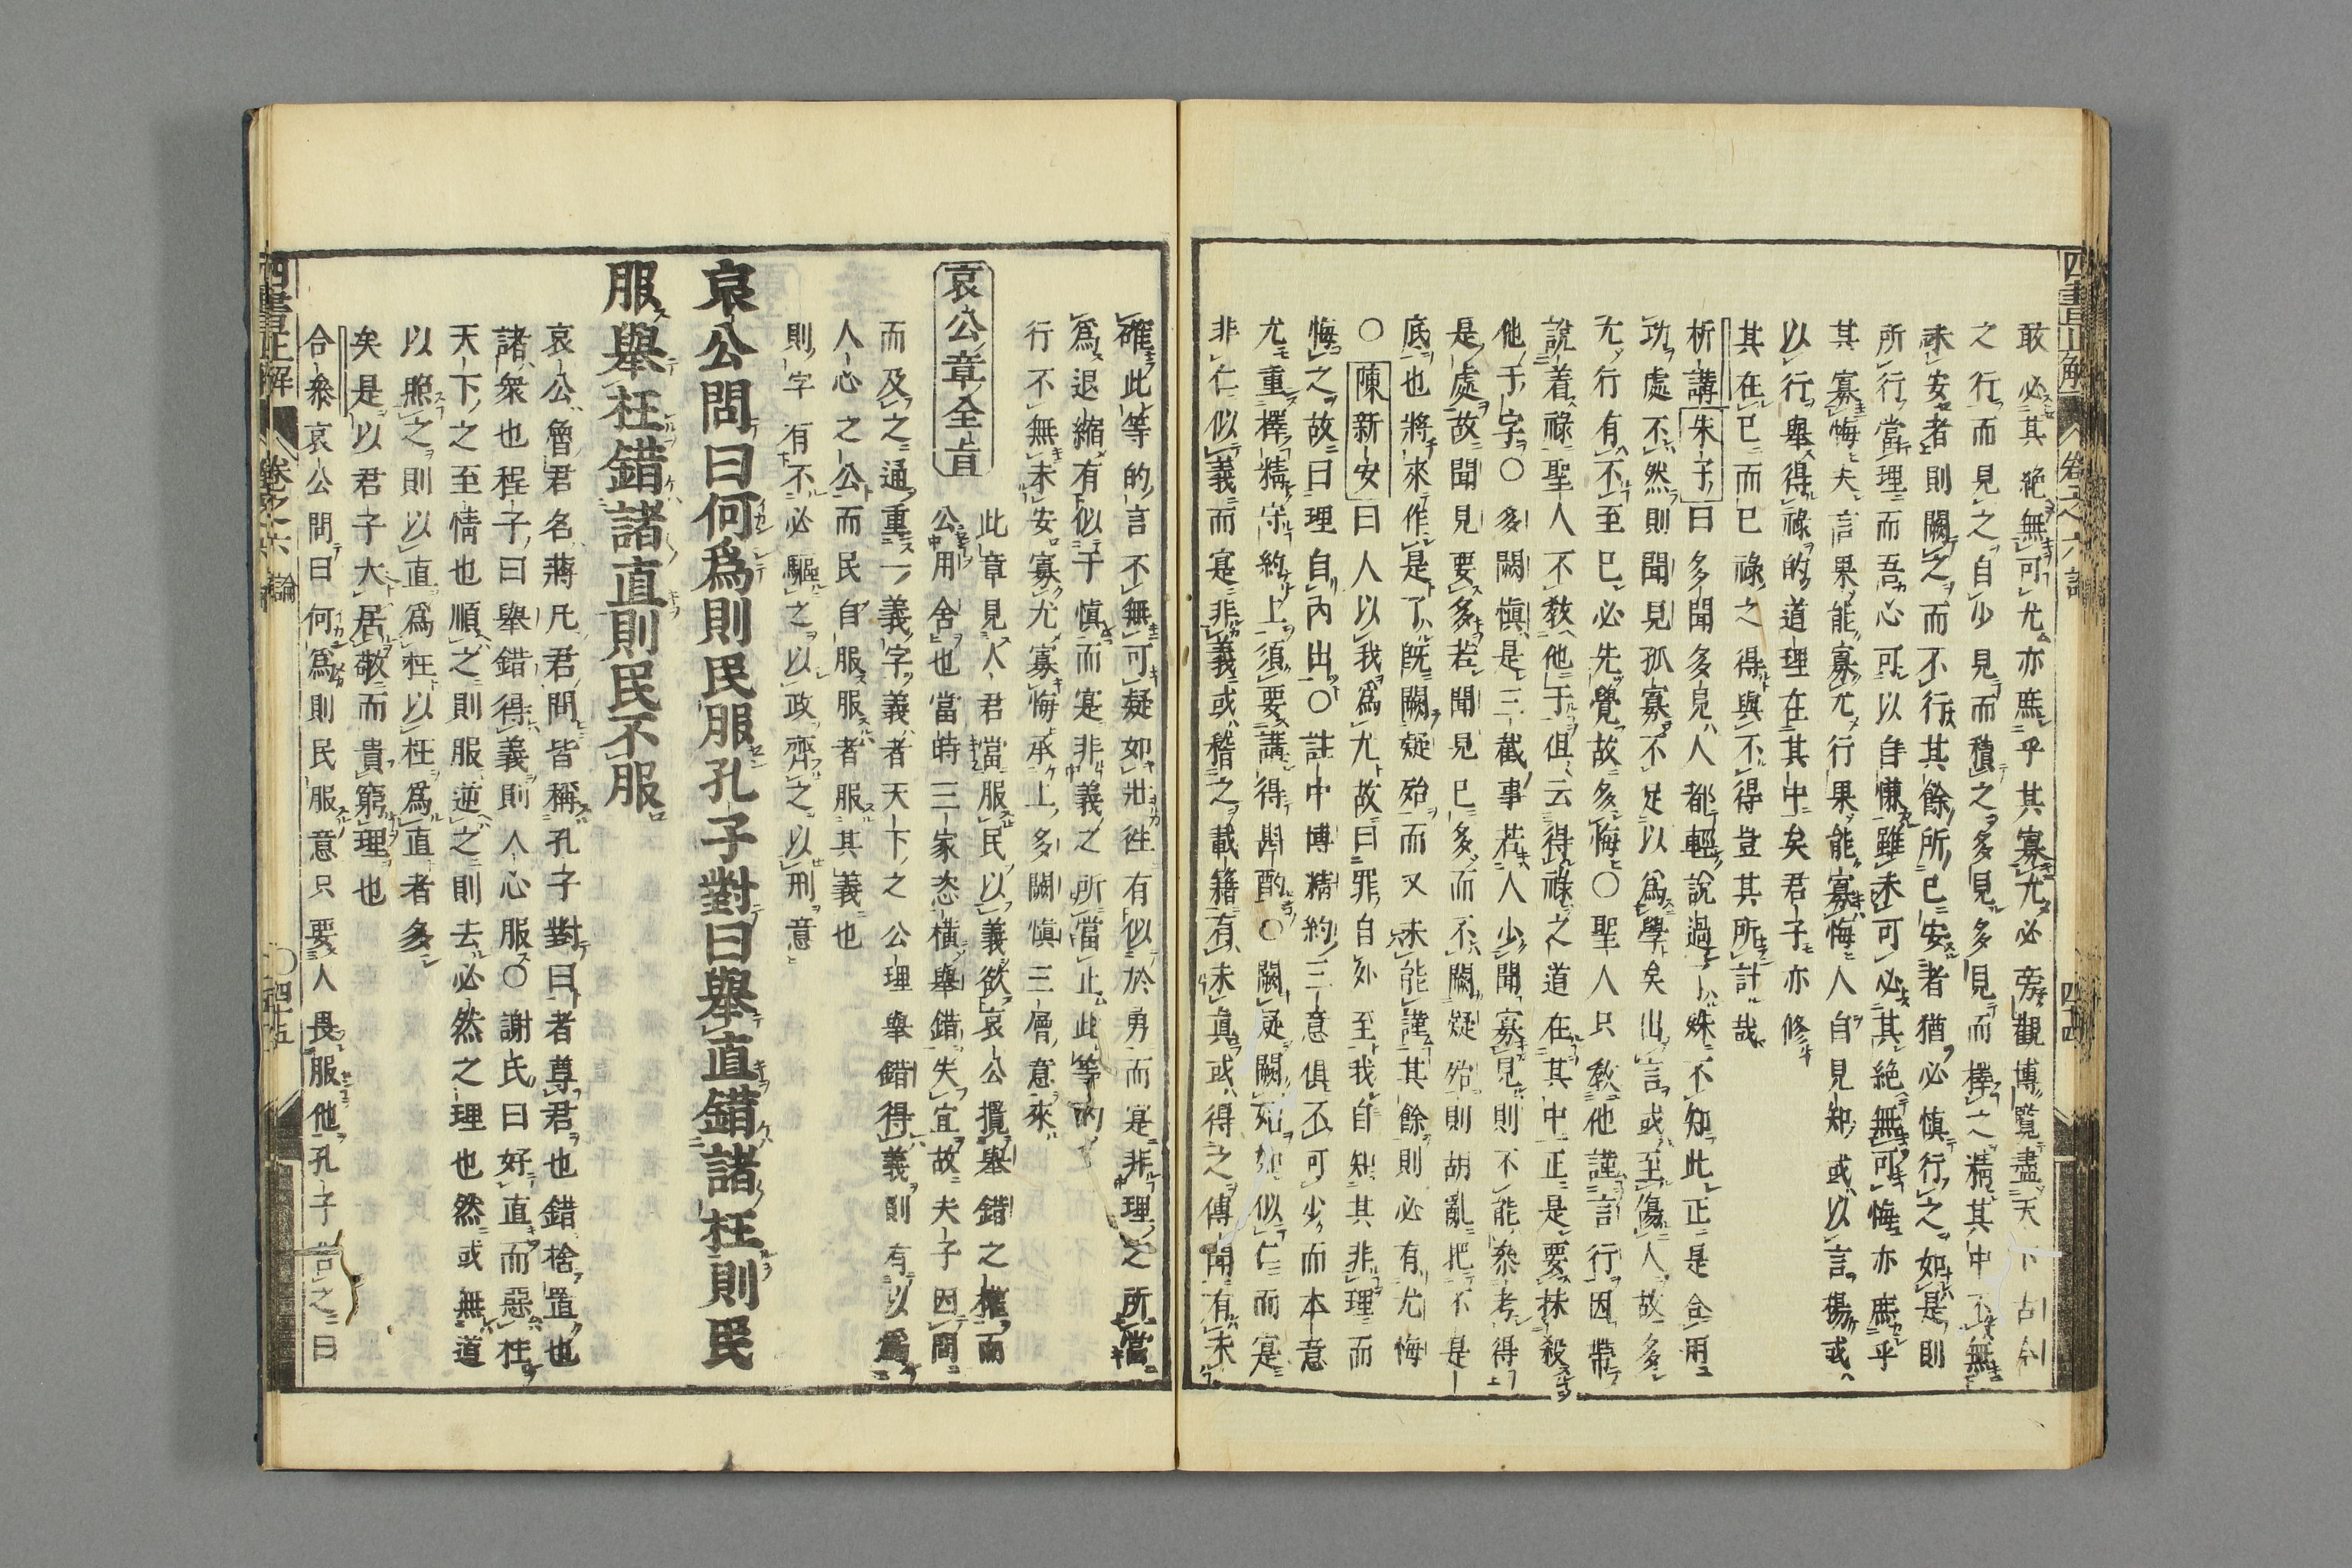 四書正解 卷之六 論 四十四
敢必其絶無可尤亦庶乎其寡尤必旁觀博覽盡天下古今
之行而見之自少見而積之多見多見而擇之精其中不無
未安者則闕之而不行其餘所已安者猶必慎行之如是則
所行當理而吾心可以自慊雖未可必其絶無可悔亦庶乎
其寡悔夫言果能寡尤行果能寡悔人自見知或以言揚或
以行舉得祿的道理在其中矣君子亦修
其在已而已祿之得與不得豈其所計哉
析講朱子曰多聞多見人都輕說過了殊不知此正是合用
功處不然則聞見孤寡不足以為學矣出言或至傷人故多
尤行有不至已必先覺故多悔○聖人只教他謹言行因帶
說着祿聖人不教他于但云得祿之道在其中正是要抹殺
他于字○多闕慎是三截事若人少聞寡見則不能參考得
是處故聞見要多若聞見已多而不闕疑殆則胡亂把不是
底也將來作是了既闕疑殆而又未能謹其餘則必有尤悔
○陳新安曰人以我為尤故曰罪自外至我自知其非理而
悔之故曰理自內出○註中博精約三意俱不可少而本意
尤重擇精守約上須要講得斟酌○闕疑闕殆如似仁而寔
非仁似義而寔非義或稽之載籍有未真或得之傳聞有未
確此等的言不無可疑如壯徃有似於勇而寔非理之所當
為退縮有似于慎而寔非義之所當止此等的
行不無未安寡尤寡悔承上多闕慎三層意來
哀公章全旨
此章見人君當服民以義欲哀公攬舉錯之權而
公用舍也當時三家恣橫舉錯失宜故夫子因問
而及之通重一義字義者天下之公理舉錯得義則有以為
人心之公而民自服服者服其義也
則字有不必驅之以政齊之以刑意
哀公問曰何為則民服孔子對曰舉直錯諸枉則民
服舉枉錯諸直則民不服
哀公魯君名蔣凡君問皆稱孔子對曰者尊君也錯捨置也
諸衆也程子曰舉錯得義則人心服○謝氏曰好直而惡枉
天下之至情也順之則服逆之則去必然之理也然或無道
以照之則以直為枉以枉為直者多
矣是以君子大居敬而貴窮理也
合參哀公問曰何為則民服意只要人畏服他孔子答之曰
四書正解 卷之六 論 四十五